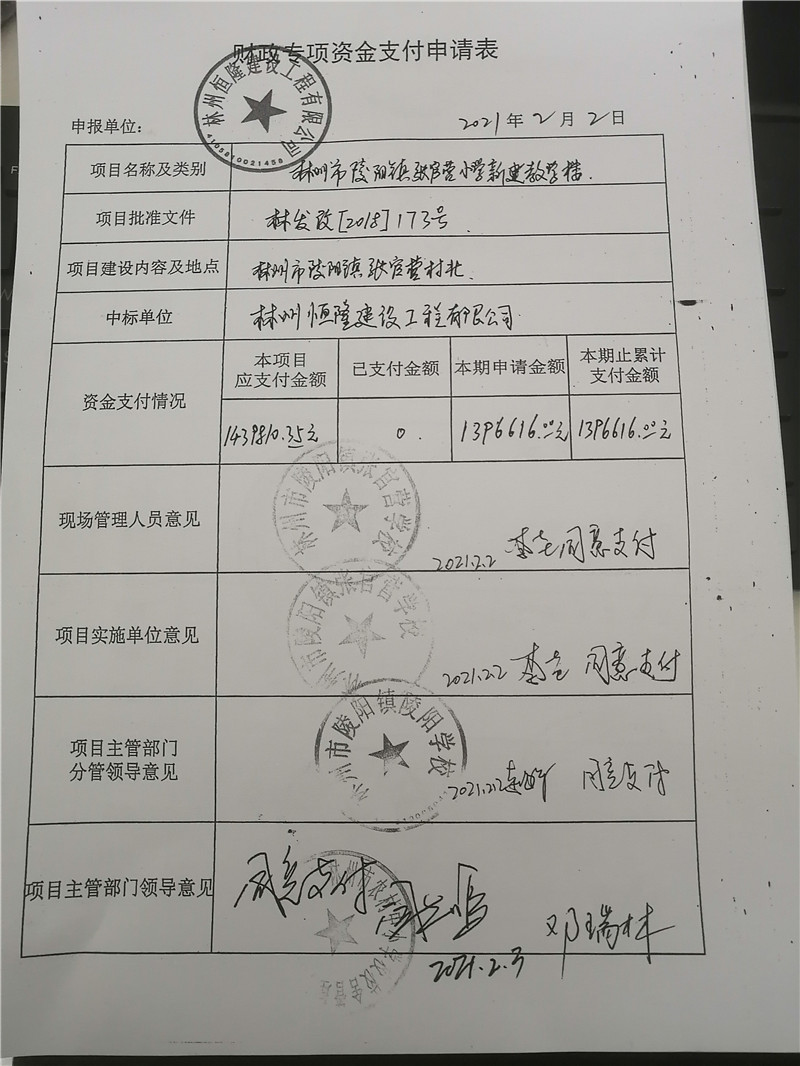 财政专项资金支付申请表
林州恒隆建设工程有限公司
4105810021458
申报单位:
2021年2月2日
项目名称及类别
林州市陵阳镇张官营小学新建教学楼.
项目批准文件
林发改[2018]173号
项目建设内容及地点
林州市陵阳镇张官营村北.
中标单位
林州恒隆建设工程有限公司
资金支付情况
本项目
应支付金额
已支付金额
本期申请金额
本期止累计
支付金额
1439810.35元
0.
1396616.00元
1396616.00元
现场管理人员意见
林州市陵阳镇张官营学校
2021.2.2 同意支付
项目实施单位意见
林州市陵阳镇张官营学校
2021.2.2 同意支付
项目主管部门
分管领导意见
林州市陵阳镇陵阳学校
2021.2.2 同意支付
项目主管部门领导意见
同意支付
邓瑞林
2021.2.3